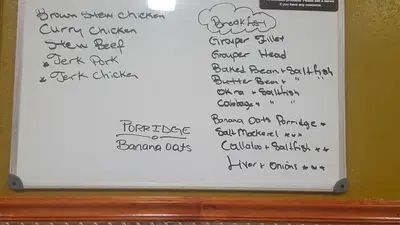 Brown Stew Chicken
Curry Chicken
Stew Beef
* Jerk Pork
* Jerk Chicken
PORRIDGE
Banana Oats
Breakfast
Grouper Fillet
Grouper Head
Baked Bean + Saltfish
Butter Bean + "
Okra + Saltfish
Cabbage + " "
Banana Oats Porridge *
Salt Mackerel * * *
Callaloo + Saltfish * *
Liver + Onions * * *
if you have any concerns.